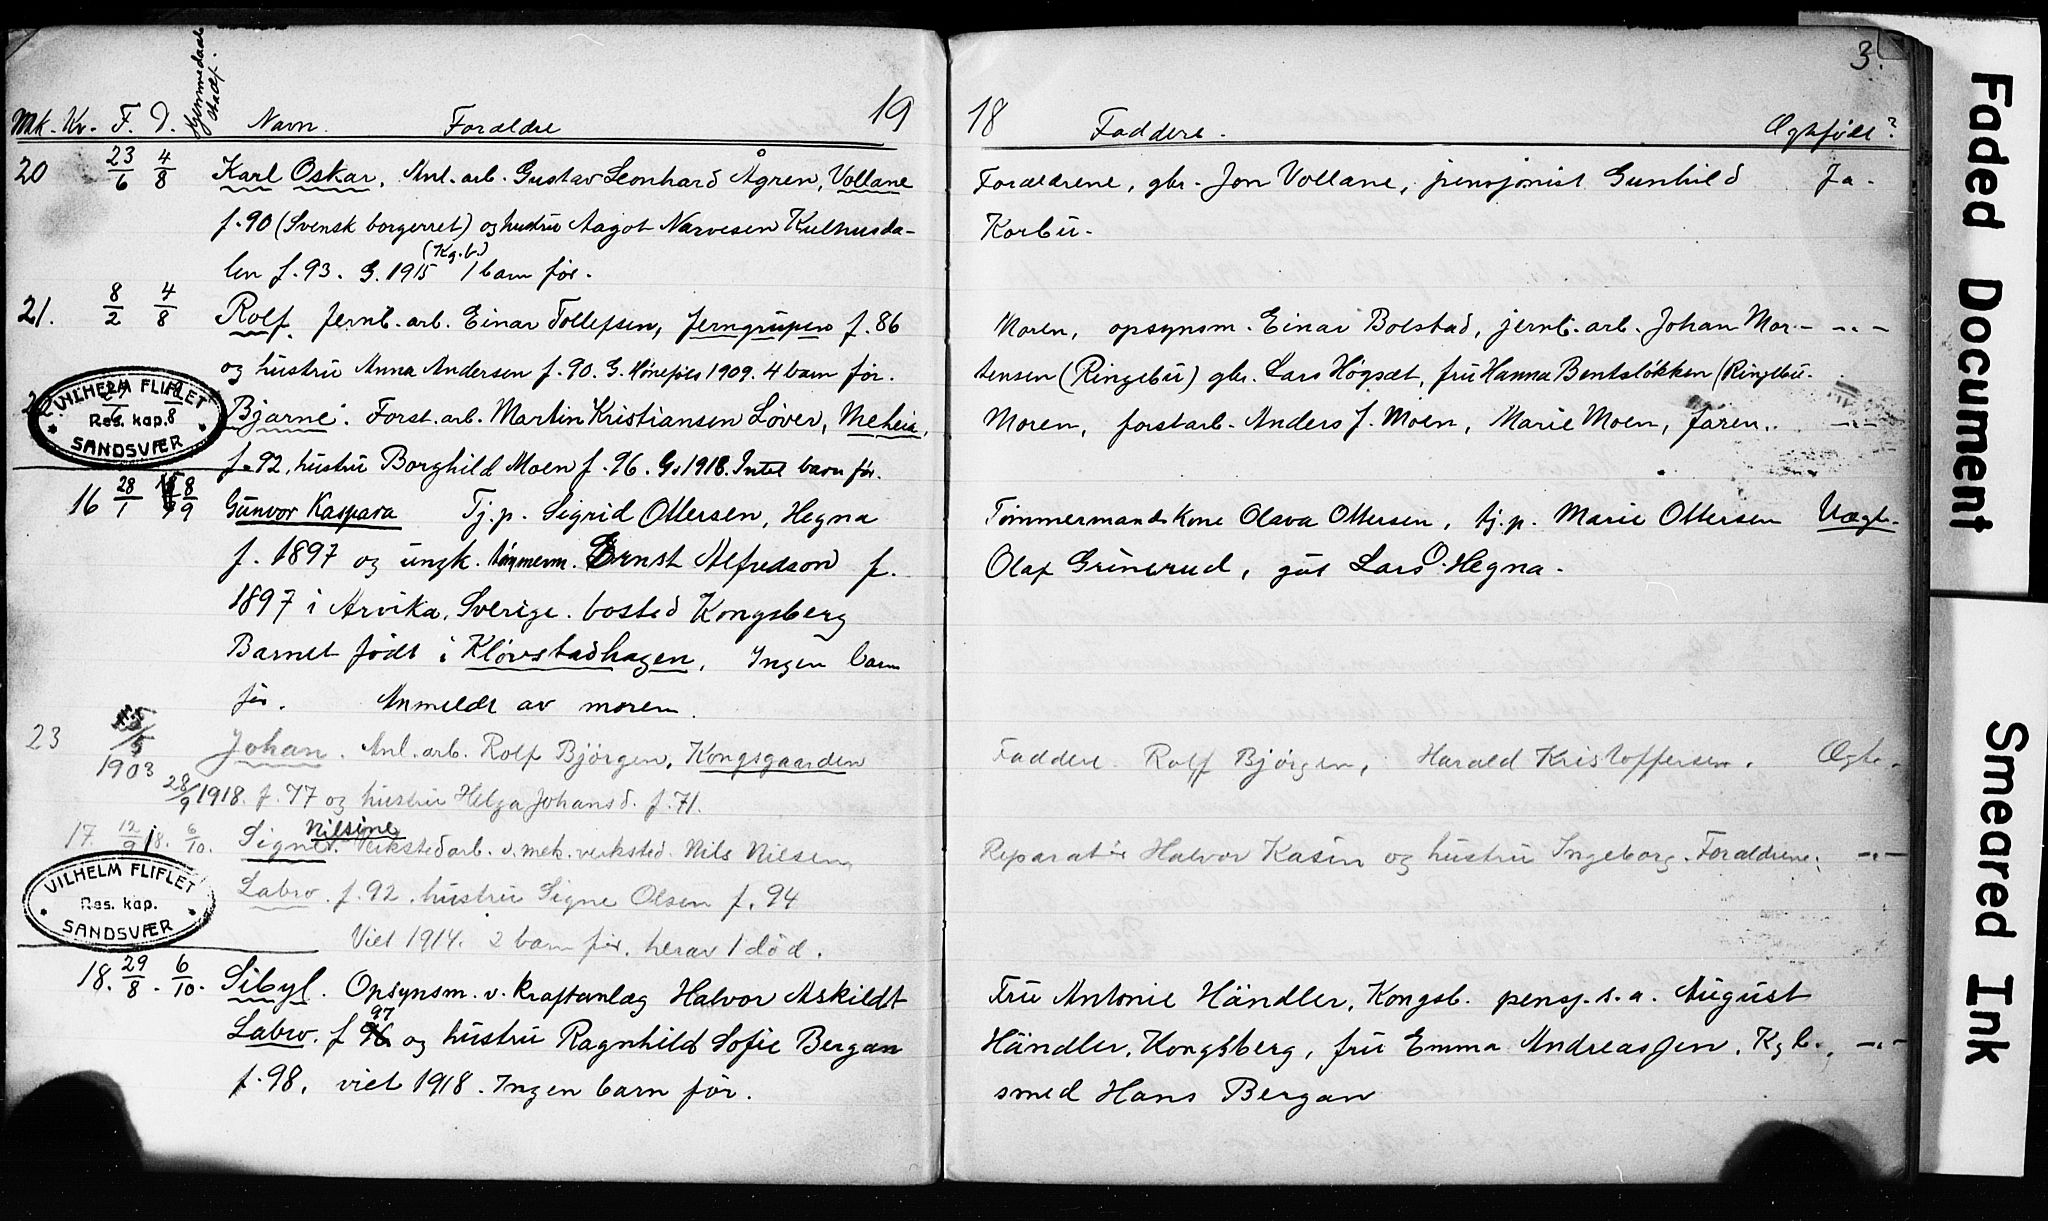 Hjemmedaab
stadf.
19
Mk. Kv. F. D. Navn. Forældre
20 23/6 4/8 Karl Oskar. Anl. arb. Gustav Leonhard Ågren, Vollane
f. 90 (Svensk borgerret) og hustru Aagot Narvesen Kulhusda-
len f. 93. G. 1915 (Kg.b.) 1 barn før.
21. 8/2 4/8 Rolf. Jernb. arb. Einar Tollefsen, Jerngruben f. 86
og hustru Anna Andersen f. 90. G. Hønefos 1909. 4 barn før.
Bjarne. Forst. arb. Martin Kristiansen Løver, Meheia,
f. 92, hustru Borghild Moen f. 96. G. 1918. Intet barn før.
VILHELM FLIFLET
Res. kap.
SANDSVÆR
16 28/1 8/9 Gunvor Kaspara Tj. p. Sigrid Ottersen, Hegna
f. 1897 og ungk. tømmerm. Ernst Alfredson f.
1897 i Arvika, Sverige. bosted Kongsberg
Barnet født i Kløvstadhagen. Ingen barn
før. Anmeldt av moren.
23 1903 Johan. Anl. arb. Rolf Bjørgen, Kongsgaarden
28/9 1918. f. 77 og hustru Helga Johansd. f. 71.
17. 12/9 18. 6/10. Signe Nilsine. Verkstedarb. v. mek. verksted. Nils Nilsen,
Labro. f. 92. hustru Signe Olsen f. 94
Viet 1914. 2 barn før, herav 1 død.
VILHELM FLIFLET
Res. kap.
SANDSVÆR
18. 29/8. 6/10. Sibyl. Opsynsm. v. kraftanlæg Halvor Askildt
Labro. f. 97 og hustru Ragnhild Sofie Bergan
f. 98. viet 1918. Ingen barn før.
3.
18 Faddere. Ægtefødt?
Forældrene, gbr. Jon Vollane, pensjonist Gunhild Ja.
Korbu.
Moren, opsynsm. Einar Bolstad, jernb. arb. Johan Mor- -"-
tensen (Ringebu) gbr. Lars Høgsæt, fru Hanna Bentsløkken (Ringebu.
Moren, forstarb. Anders J. Moen, Marie Moen, faren. -"-
Tømmermandskone Olava Ottersen, tj. p. Marie Ottersen Uægte.
Olaf Grinerud, gut Lars O. Hegna.
Faddere. Rolf Bjørgen, Harald Kristoffersen. Ægte.
Reparatør Halvor Kasin og hustru Ingeborg. Forældrene. -"-
Fru Antonie Händler, Kongsb. pensj. s. a. August
Händler, Kongsberg, fru Emma Andreasjen, Kgb. -"-
smed Hans Bergan
Faded Document
Smeared Ink